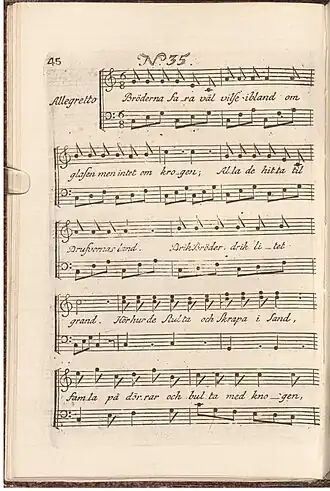 45 N.º 35.
Allegretto Bröderna fa-ra väl vilse ibland om
glasen men intet om kro-gen; Al-la de hitta til
Drufvornas land. Drik Bröder drik li-tet
grand. Hör hur de stulta och skrapa i sand,
famla på dör-rar och bul-ta med kno-gen,